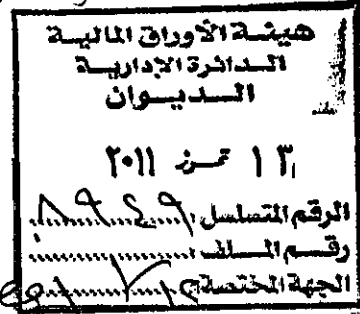 هيئة الأوراق المالية
الدائرة الإدارية
الديوان
١٣ تموز ٢٠١١
الرقم المتسلسل ٨٩٤٩
رقم الملف
الجهة المختصة